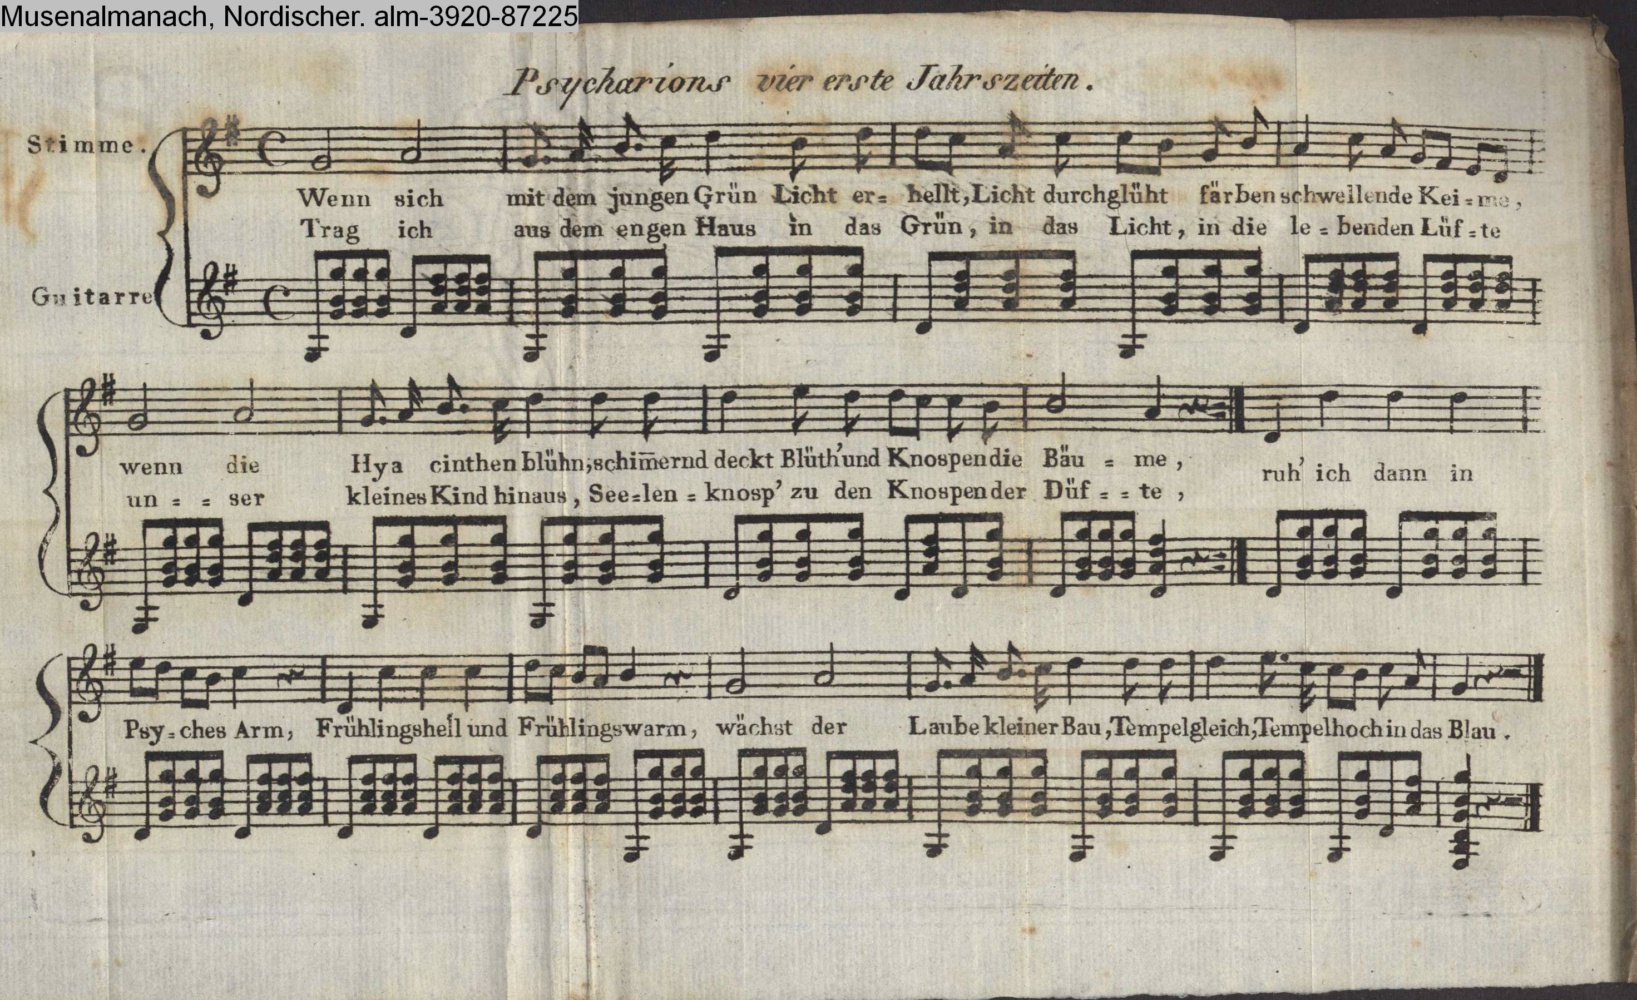 Musenalmanach, Nordischer. alm-3920-87225
Psycharions vier erste Jahrszeiten.
Stimme.
Wenn sich mit dem jungen Grün Licht er= hellt, Licht durchglüht färben schwellende Kei=me,
Trag ich aus dem engen Haus in das Grün, in das Licht, in die le=benden Lüf=te
Guitarre
wenn die Hya cinthen blühn, schim̄ernd deckt Blüth' und Knospen die Bäu = me, ruh' ich dann in
un = = ser kleines Kind hinaus, See=len = knosp' zu den Knospen der Düf = = te,
Psy=ches Arm, Frühlingshell und Frühlingswarm, wächst der Laube kleiner Bau, Tempelgleich, Tempelhoch in das Blau.